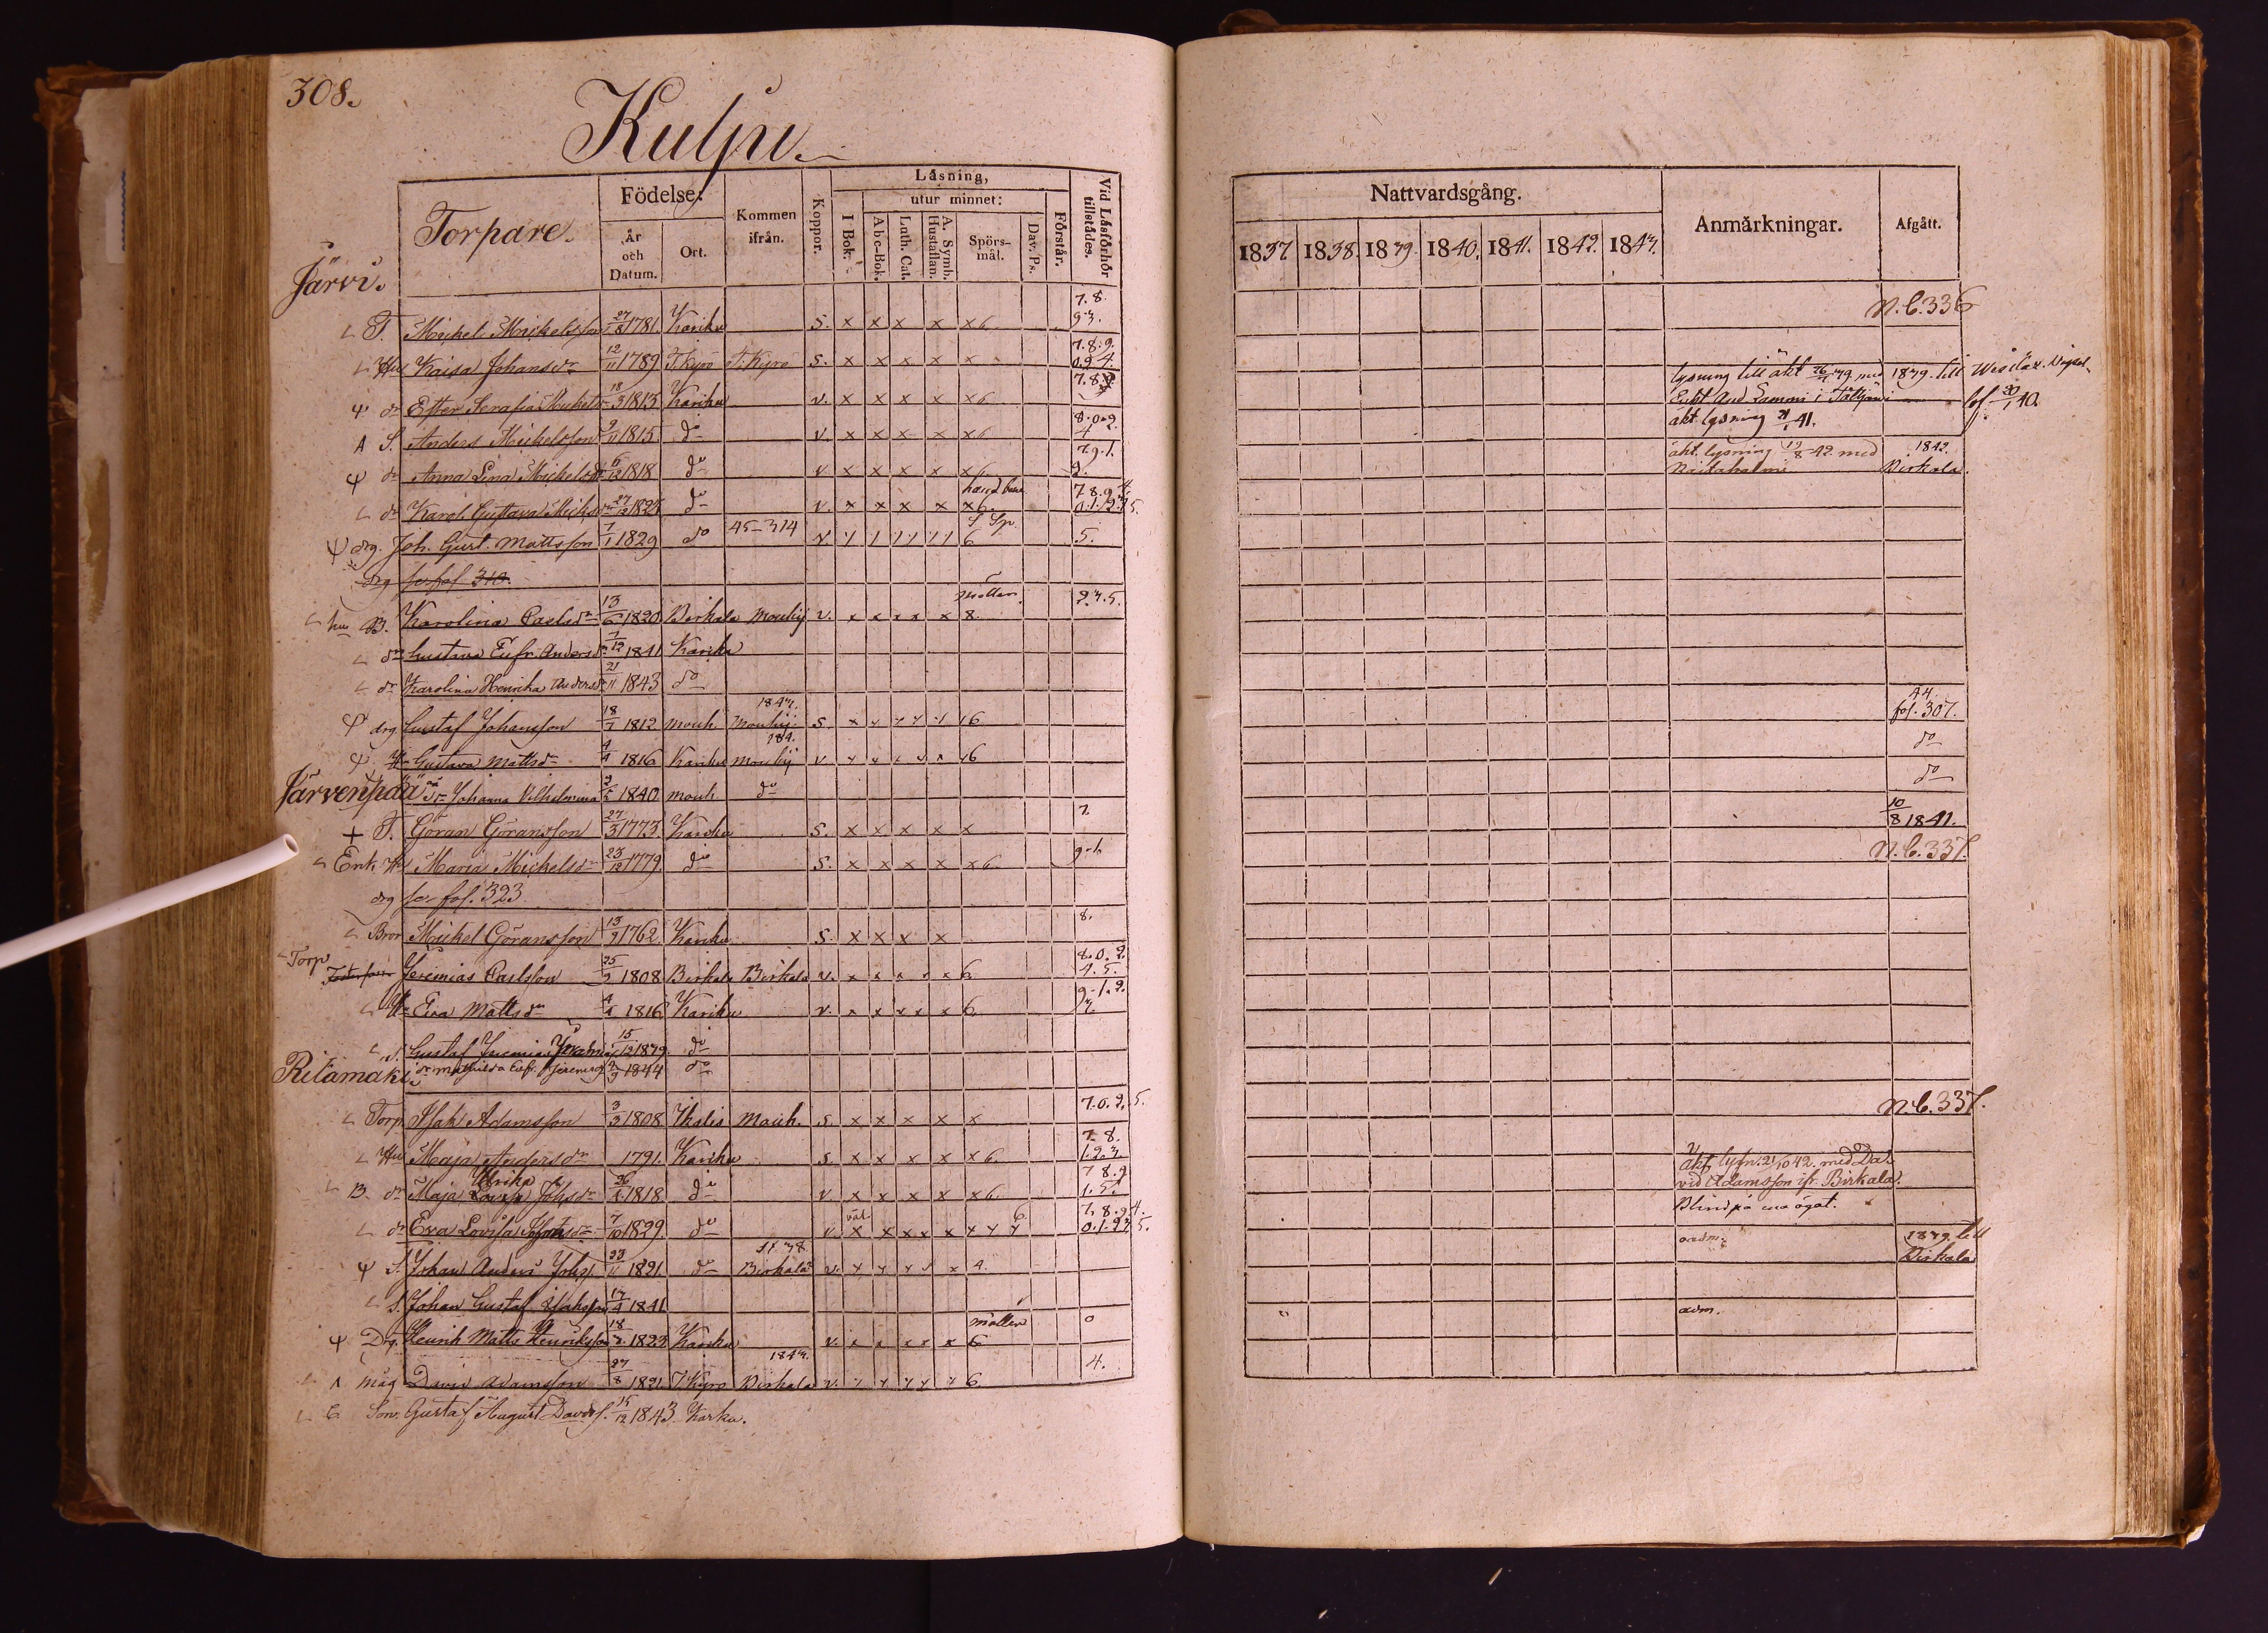 308.
Kulju.
Torpare.
Födelse:
År och Datum.
Ort.
Kommen ifrån.
Koppor.
Läsning,
I Bok.
utur minnet:
Abc-Bok.
Luth. Cat.
A. Symb. Hustaflan.
Spörsmål.
Dav. Ps.
Förstår.
Vid Läsförhör tillstädes.
Nattvardsgång.
1837. 1838. 1839. 1840. 1841. 1842. 1843.
Anmärkningar.
Afgått.
Järvi.
T. Michel Michelsson 27/8 1781. Karku S. x x x x x6 7.8. 9.3. N.b.336
Hu Kaisa Johansdr 12/11 1789 T.Kyro T.Kyro S. x x x x x 7.8.9. 0.3 4.
dr Ester Serafia Michelsdr 18/3 1813 Karku v. x x x x x6 7.8.9 lysning till äkt 26/ 39 med Enkl And Sammi i 1839. till
fol 30/1 40.
S. Anders Michelsson 9/11 1815 do v. x x x x x6 8.0.2. 4 äkt. lysning 41.
dr Anna Lina Michelsdr 6/12 1818 do v x x x x x6 7.9.1. 2. äkt. lysning 12/8 42 med 1842. Birkala.
dr Karol. Gustava Michsdr 27/12 1823 do v. x x x x x6. 7.8.9.4. 0.1.2.3 5.
drg. Joh. Gust. Mattsson 7/1 1829 do 45-314 v. 6 5.
drg se fol 310.
hu B. Karolina Carlsdr 13/6 1820 Birkala Mouhij v. x x x x x 8. 2.3.5.
dr Gustava Eufr. Andersdr 7/12 1841 Karku
dr Karolina Henrika Andersdr 21/11 1843 do
drg Gustaf Johansson 18/7 1812 mouh. 1843. Mouhij S. 16 44. fol. 307.
Hu Gustava Mattsdr 4/4 1816 Karku 184. mouhij v. 16 do
Järvenpää
dr Johanna Vilhelmina 1840 mouh. do do
T. Göran Göransson 27/3 1773. Karku S. x x x x x 7. 10/8 1841.
Enk. Hu Maria Michelsdr 23/12 1779. do S. x x x x x6. 9.1. N.b.337.
drg se fol. 323
Bror Michel Göransson 13/9 1762 Karku S. x x x x 8.
Torp Jeremias Carlsson 25/2 1808 Birkala Birkala v. x x x x x 6. 8.0.2. 4.5.
Hu Eva Mattsdr 4/4 1816 Karku v. x x x x x 6. 9.1.2. 3.
S. Gustaf Jeremias 15/12 1839. do
dr Mathilda Eufr. 9/9 1844 do
Ritamäki
Torp. Isak Adamsson 3/3 1808 Ikalis Mouh. S. x x x x x 7.0.2.5. N.b.337.
Hu Maja Andersdr 1791. Karku S. x x x x x6. 7.8. 1.2.3.
B. dr Maja Ulrika Johsdr 26/ 1818 do v x x x x x6. 7 8.9 1.5. äkt. lysn. 2/10 42. med David Adamsson ifr. Birkala.
dr Eva Lovisa Johsdr 7/10 1829. do v. väl x x x x x 6. 7.8.9.4. 0.1.2.3 5. Blind på ena ögat.
S. Johan Anders Johss. 23/11 1821. do 38 Birkala v. 4. adm. 1839. till Birkala
S. Johan Gustaf Isaksson 17/4 1841
Drg. Henrik Matts Henriksson 18/7 1823 Karku v. x x x x x 6 0 adm.
måg David Adamsson 27/8 1821 T.Kyro 1843. Birkala v. 6. 4.
Son. Gustaf August Davids. 15/12 1843 Karku.